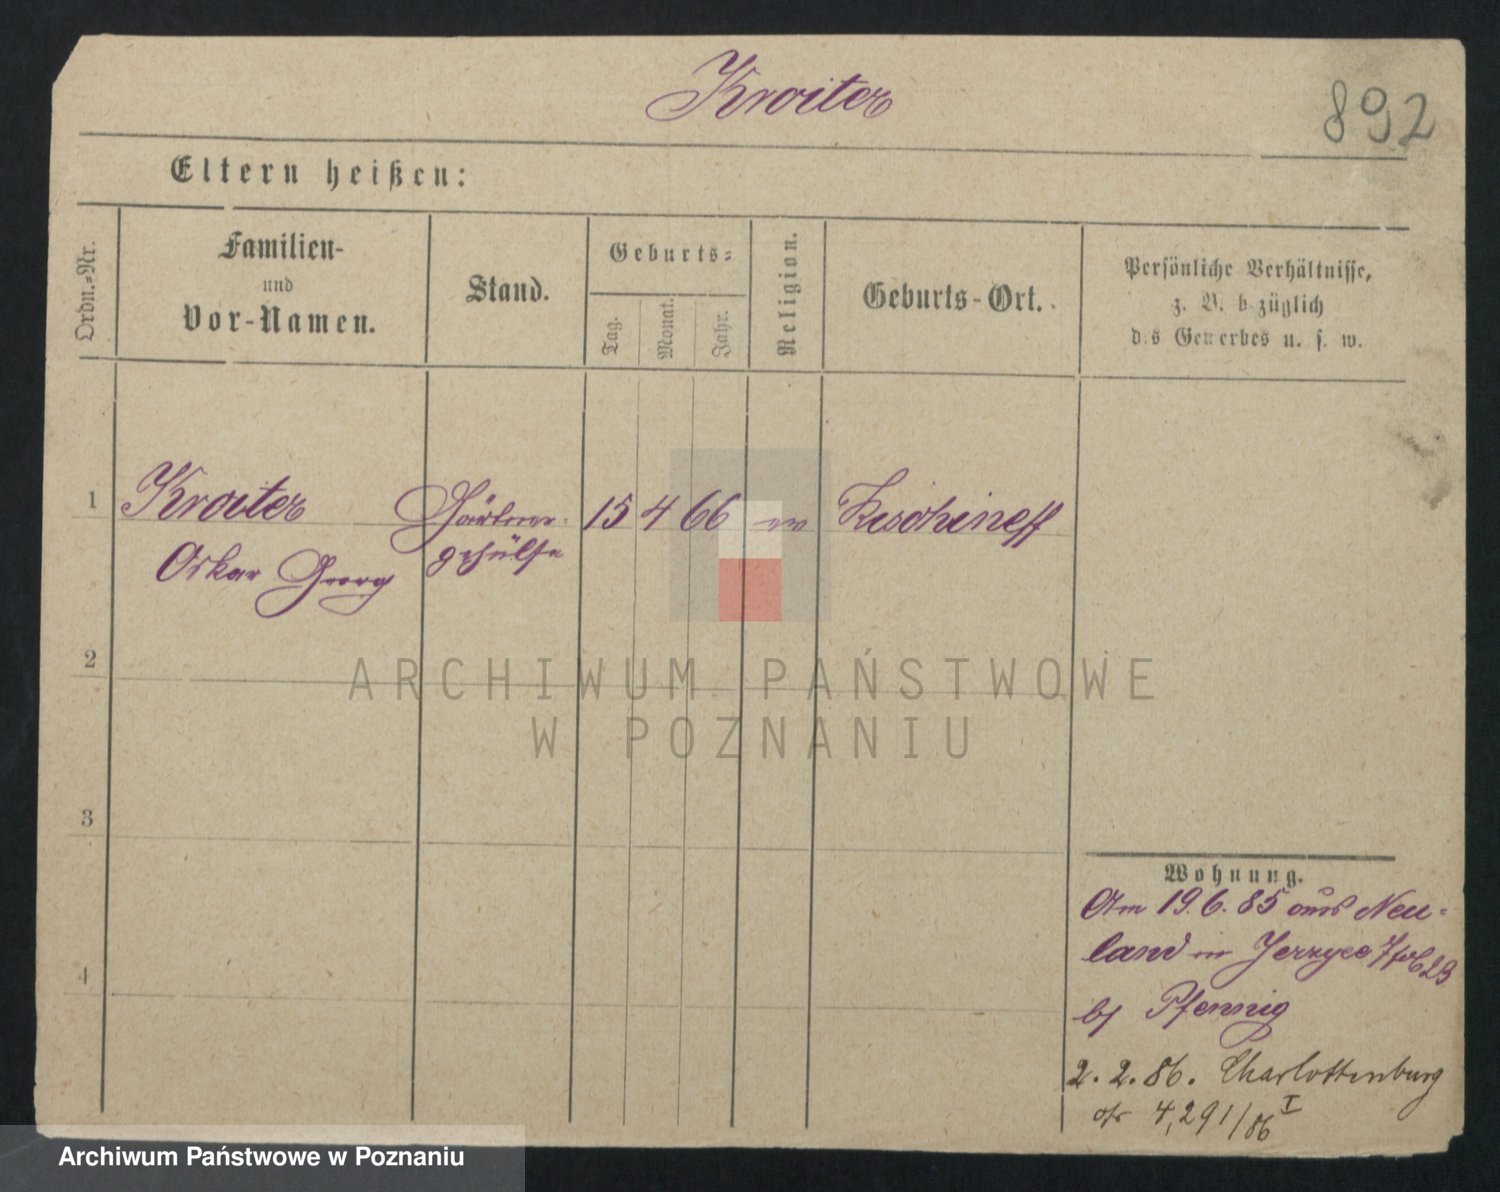 Kroiter
892
Eltern heißen:
Ordn.-Nr.
Familien-
und
Vor-Namen.
Stand.
Geburts-
Tag.
Monat.
Jahr.
Religion.
Geburts-Ort.
Persönliche Verhältnisse,
z. B. bezüglich
des Gewerbes u. s. w.
1 Kroiter Gärtner- 15 4 66 ev Kischineff
Oskar Georg gehülfe
2
ARCHIWUM PAŃSTWOWE
W POZNANIU
3
4
Wohnung.
Am 19.6.85 aus Neu-
land in Jerzyce 23
bj Pfennig
2.2.86. Charlottenburg
4,291/86 I
Archiwum Państwowe w Poznaniu